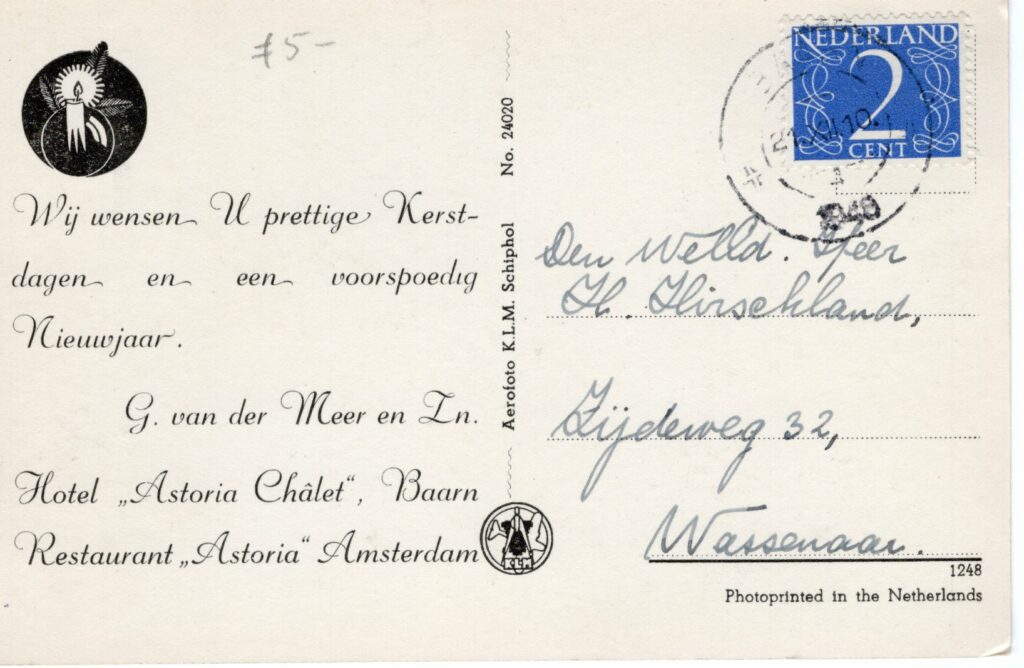 f5-
Wij wensen U prettige Kerst-
dagen en een voorspoedig
Nieuwjaar.
G. van der Meer en Zn.
Hotel „Astoria Châlet“, Baarn
Restaurant „Astoria“ Amsterdam
Aerofoto K.L.M. Schiphol No. 24020
KLM
NEDERLAND
2
CENT
1948
Den Weled. Heer
H. Hirschland,
Zijdeweg 32,
Wassenaar.
1248
Photoprinted in the Netherlands